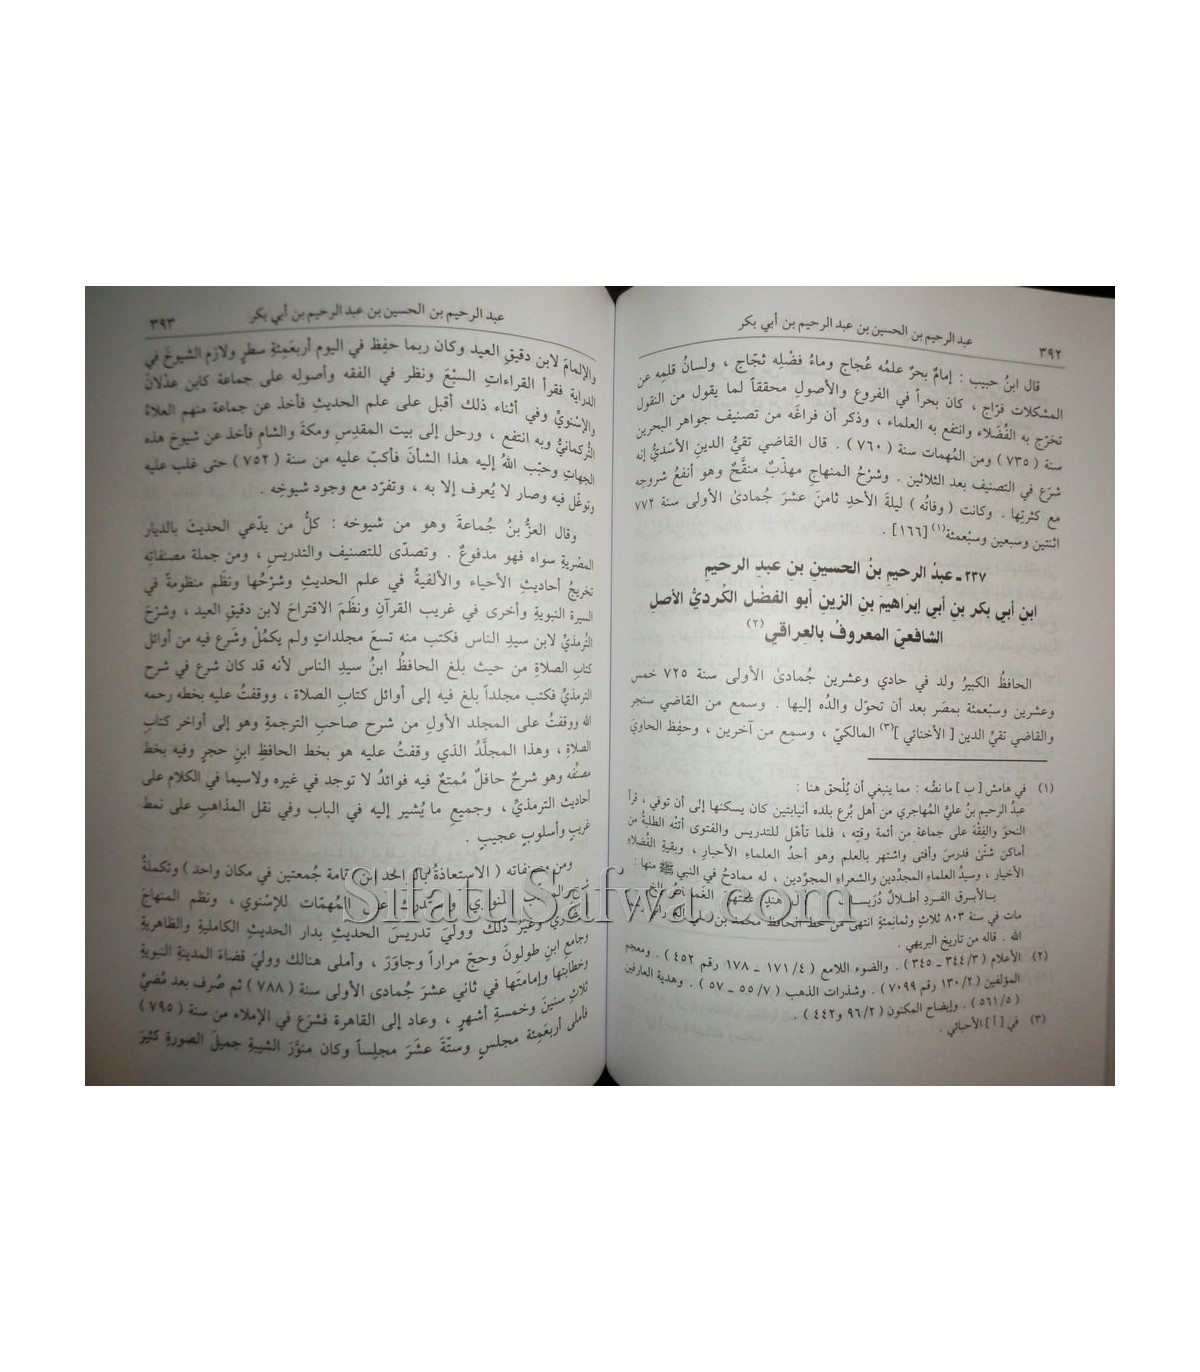 ٣٩٢
عبد الرحيم بن الحسين بن عبد الرحيم بن أبي بكر
قال ابنُ حبيب : إمامٌ بحرُ علمُه عُجاج وماءُ فضْلِه ثجّاج ، ولسانُ قلمِه عن
المشكلات فرّاج ، كان بحراً في الفروع والأصولِ محققاً لما يقول من النقول
تخرّج به الفُضَلاء وانتفع به العلماء ، وذكر أن فراغَه من تصنيف جواهر البحرين
سنة ( ٧٣٥ ) ومن المُهمات سنة ( ٧٦٠ ) . قال القاضي تقيُّ الدينِ الأسَديُّ إنه
شرَع في التصنيف بعد الثلاثين . وشرْحُ المنهاجِ مهذّبٌ منقَّحٌ وهو أنفعُ شروحِه
مع كثرتِها . وكانت ( وفاتُه ) ليلةَ الأحدِ ثامنَ عشرَ جُمادىٰ الأولى سنة ٧٧٢
اثنتين وسبعين وسبْعمئة(١) [١٦٦] .
٢٣٧ ـ عبدُ الرحيمِ بنُ الحسينِ بنِ عبدِ الرحيمِ
ابنِ أبي بكرِ بنِ أبي إبراهيمَ بنِ الزينِ أبو الفضْل الكُرديُّ الأصلِ
الشافعيّ المعروفُ بالعِراقي(٢)
الحافظُ الكبيرُ ولد في حادي وعشرين جُمادىٰ الأولى سنة ٧٢٥ خمس
وعشرين وسبْعمئة بمصَر بعد أن تحوّل والدُه إليها . وسمع من القاضي سنجر
والقاضي تقيِّ الدين [ الأخنائي ](٣) المالكيّ ، وسمِع من آخرين ، وحفِظ الحاويَ
(١) في هامش [ ب ] ما نصُّه : مما ينبغي أن يُلْحق هنا :
عبدُ الرحيم بنُ عليٍّ المُهاجري من أهل بُرع بلده أنيابتين كان يسكنها إلى أن توفي ، قرأ
النحوَ والفِقْهَ على جماعة من أئمة وقتِه ، فلما تأهّل للتدريس والفتوى أتتْه الطلبةُ من
أماكنَ شتىٰ فدرسَ وأفتى واشتهر بالعلم وهو أحدُ العلماءِ الأحبارِ ، وبقيةِ الفُضلاءِ
الأخيار ، وسيدُ العلماءِ المجدِّدين والشعراءِ المجوِّدين ، له ممادحُ في النبي ﷺ منها :
بـالأبرق الفردِ أطـلالٌ
مات في سنة ٨٠٣ ثلاثٍ وثمانِمئةٍ انتهى من خط الحافظ محمد بن
الله . قاله من تاريخ البريهي .
(٢) الأعلام ( ٣٤٤/٣ ـ ٣٤٥ ) . والضوء اللامع ( ١٧١/٤ ـ ١٧٨ رقم ٤٥٢ ) . ومعجم
المؤلفين ( ١٣٠/٢ رقم ٧٠٩٩ ) . وشذرات الذهب ( ٥٥/٧ ـ ٥٧ ) . وهدية العارفين
( ٥٦١/٥ ) . وإيضاح المكنون ( ٩٦/٢ و٤٤٢ ) .
(٣) في [ أ ] الأحبائي .
عبد الرحيم بن الحسين بن عبد الرحيم بن أبي بكر
٣٩٣
والإلمامَ لابن دقيقِ العيد وكان ربما حفِظ في اليوم أربعَمئةِ سطرٍ ولازم الشيوخَ في
الدرايةِ فقرأ القراءاتِ السبْعَ ونظر في الفقه وأصولِه على جماعة كابن عدْلانَ
والإسْنويِّ وفي أثناء ذلك أقبل على علم الحديثِ فأخذ عن جماعة منهم العلاءُ
التُّركمانيُّ وبه انتفع ، ورحل إلى بيت المقدِسِ ومكةَ والشام فأخذ عن شيوخ هذه
الجهاتِ وحبّب اللهُ إليه هذا الشأنَ فأكبّ عليه من سنة ( ٧٥٢ ) حتى غلب عليه
وتوغّل فيه وصار لا يُعرف إلا به ، وتفرّد مع وجود شيوخِه .
وقال العزُّ بنُ جُماعةَ وهو من شيوخه : كلُّ من يدّعي الحديثَ بالديار
المصْرية سواه فهو مدفوعٌ . وتصدّى للتصنيف والتدريس ، ومن جملة مصنفاتِه
تخريجُ أحاديثِ الأحياء والألفيةُ في علم الحديثِ وشرْحُها ونظَم منظومةً في
السيرة النبويةِ وأخرى في غريب القرآن ونظَمَ الاقتراحَ لابن دقيقِ العيد ، وشرَحَ
التِّرمذيَّ لابن سيدِ الناس فكتب منه تسعَ مجلداتٍ ولم يكمُلْ وشَرع فيه من أوائل
كتابِ الصلاةِ من حيث بلغ الحافظُ ابنُ سيدِ الناس لأنه قد كان شرع في شرح
الترمذيِّ فكتب مجلداً بلغ فيه إلى أوائل كتابِ الصلاة ، ووقفتُ عليه بخطه رحمه
الله ووقفتُ على المجلد الأولِ من شرح صاحب الترجمةِ وهو إلى أواخر كتابِ
الصلاةِ ، وهذا المجلَّدُ الذي وقفتُ عليه هو بخط الحافظِ ابنِ حجرٍ وفيه بخط
مصنِّفه وهو شرحٌ حافلٌ مُمتعٌ فيه فوائدُ لا توجد في غيره ولاسيما في الكلام على
أحاديث الترمذيِّ ، وجميعِ ما يُشير إليه في الباب وفي نقل المذاهبِ على نمطٍ
غريبٍ وأسلوبٍ عجيبٍ .
ومن مصنفاته ( الاستعاذةُ بالواحد من إقامة جُمعتين في مكان واحد ) وتكملةُ
شرْحِ المهذب للنووي والاستدراكُ على المهمّات للإسْنوي ، ونظم المنهاجَ
وغيرُ ذلك ووليَ تدريسَ الحديثِ بدار الحديثِ الكامليةِ والظاهريةِ
وجامعِ ابنِ طولونَ وحجّ مراراً وجاوَرَ ، وأملى هنالك ووليَ قضاءَ المدينةِ النبويةِ
وخطابتَها وإمامتَها في ثاني عشرَ جُمادى الأولى سنة ( ٧٨٨ ) ثم صُرف بعد مُضيِّ
ثلاثِ سنينَ وخمسةِ أشهرٍ ، وعاد إلى القاهرة فشرَع في الإملاء من سنة ( ٧٩٥ )
فأملى أربعَمئة مجلسٍ وستّةَ عشَرَ مجلِساً وكان منوّرَ الشيبةِ جميلَ الصورةِ كثيرَ
SilatuSafwa.com